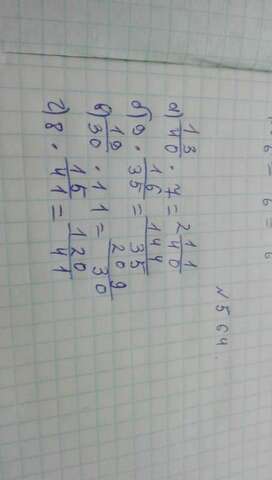 N 564.
а) 13/40 · 7 = 2 11/40
б) 9 · 16/35 = 144/35
в) 19/30 · 11 = 209/30
г) 8 · 15/41 = 120/41